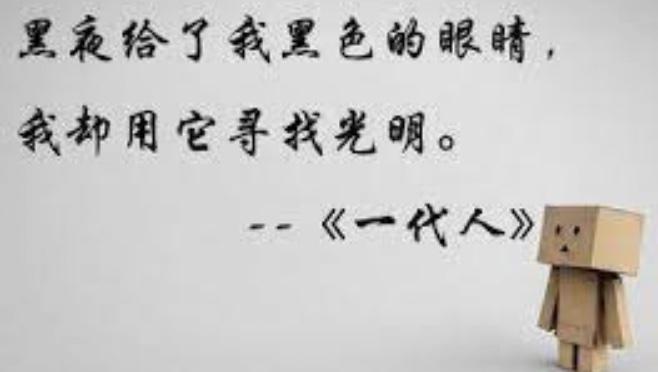 黑夜给了我黑色的眼睛,
我却用它寻找光明。
--《一代人》